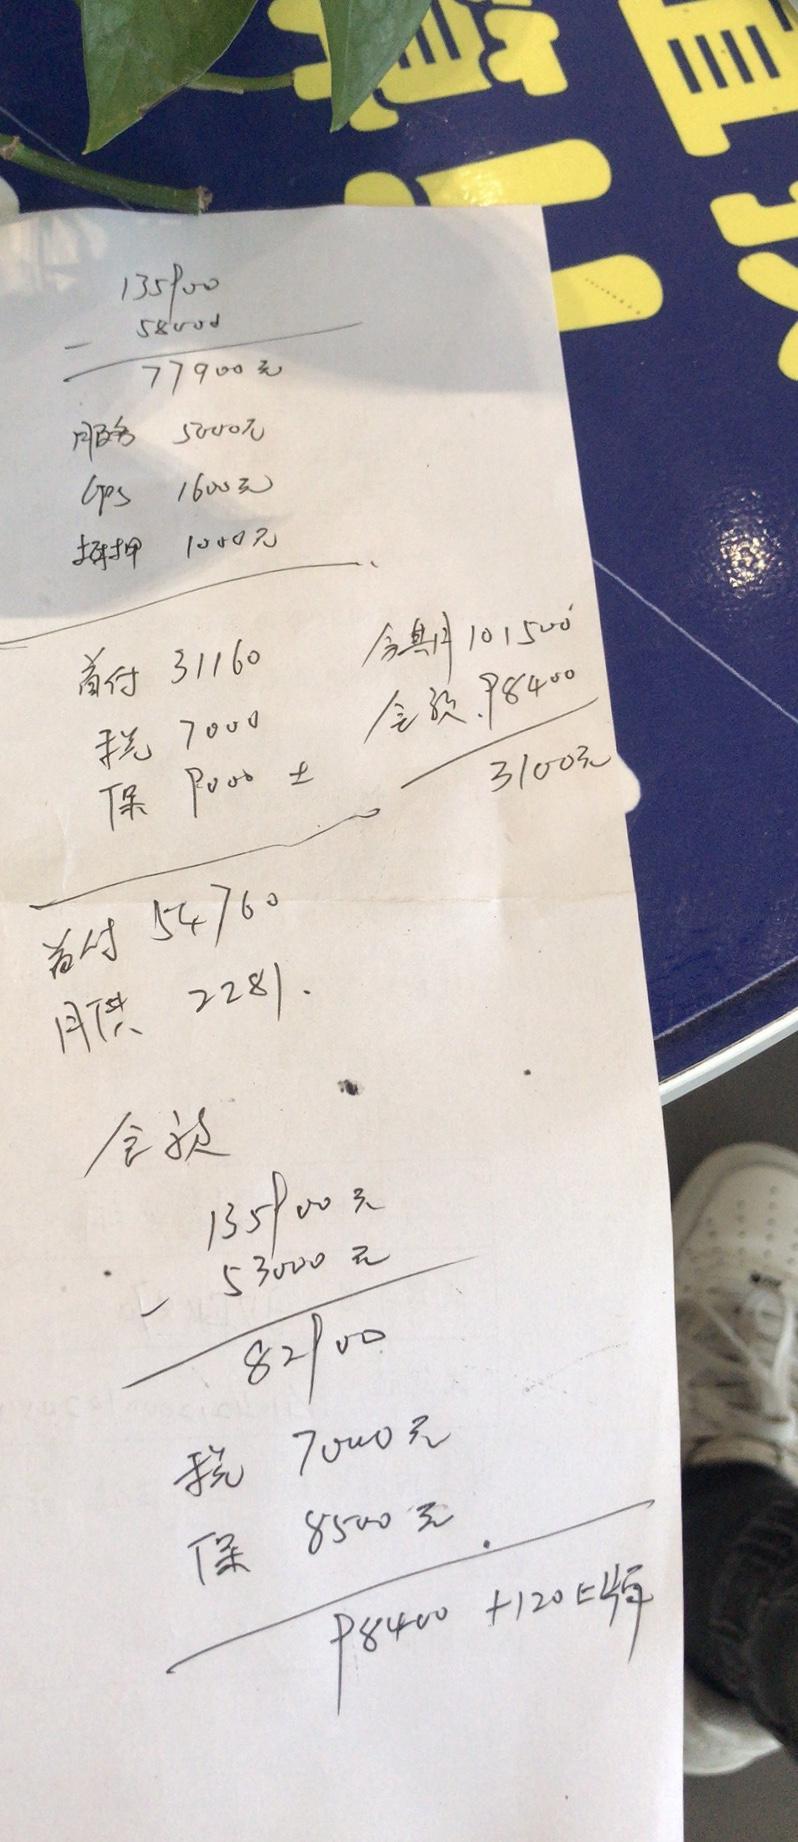 135900
- 58000
77900元
服务 5000元
GPS 1600元
抵押 1000元
首付 31160
税 7000
保 9000 ±
分期 101500
全款 98400
3100元
首付 54760
月供 2281.
全款
135900元
- 53000元
82900
税 7000元
保 8500元
98400 +120上牌